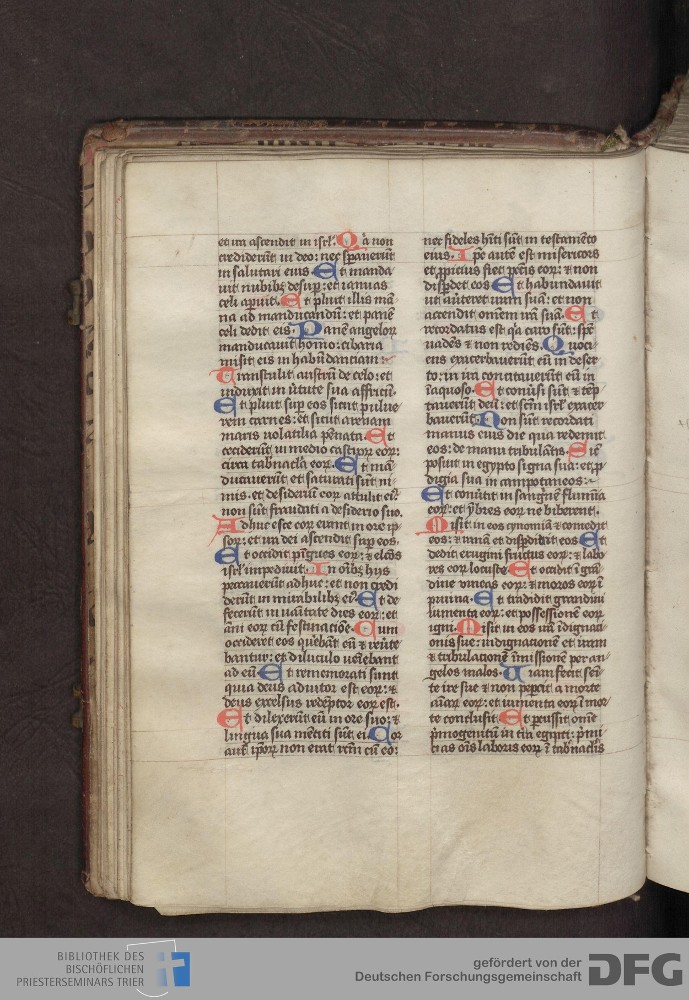 et ira ascendit in isrl'. Q̄a non
crediderūt in deo: nec spauerūt
in salutari eius. Et manda
uit nubibꝫ desup: et ianuas
celi apuit. Et pluit illis mā
na ad manducandū: et panē
celi dedit eis. Panē angeloꝝ
manducauit homo: cibaria
misit eis in habūdanciam:
Transtulit austrū de celo: et
induxit in v̄tute sua affricū.
Et pluit suꝑ eos sicut pulue
rem carnes: et sicut arenam
maris volatilia pēnata. Et
ceciderūt in medio castroꝝ eoꝝ:
circa tabnacl̄a eoꝝ. Et mā
ducauerūt et saturati sūt ni
mis. et desideriū eoꝝ attulit eis
non sūt fraudati a desiderio suo.
Adhuc esce eoꝝ erant in ore ip
soꝝ: et ira dei ascendit suꝑ eos.
Et occidit pīgues eoꝝ: ⁊ elc̄os
isrl' impediuit. In oībꝫ hijs
peccauerūt adhuc: et non credi
derūt in mirabilibꝫ ei'. Et de
fecerūt in vanitate dies eoꝝ: et
āni eoꝝ cū festinatiōe. Cum
occideret eos querebāt eū ⁊ reūte
bantur: et diluculo veniebant
ad eū. Et rememorati sunt
quia deus adiutor est eoꝝ: ⁊
deus excelsus redēptor eoꝝ est.
Et dilexerūt eū in ore suo: ⁊
lingua sua mētiti sūt ei. Cor
autē ipoꝝ non erat rc̄m cū eo:
nec fideles hīti sūt in testamēto
eius. Ipe autē est misericors
et ꝓpicius fiet pctīs eoꝝ: ⁊ non
disꝑdet eos. Et habundauit
ut auteret iram suā: et non
accendit omēm irā suā. Et
recordatus est q̄a caro sūt: spēs
vadēs ⁊ non rediēs. Quoci
ens exacerbauerūt eū in deser
to: in irā concitauerūt eū in
īaquoso. Et conūsi sūt ⁊ tēp
tauerūt deū: et scm̄ isrl' exacer
bauerūt. Non sūt recordati
manus eius die qua redemit
eos: de manu tribulātis. Sic̄
posuit in egypto signa sua: et ꝓ
digia sua in campo taneos:
Et conūtit in sangnē flumīa
eoꝝ: et ymbres eoꝝ ne biberent.
Misit in eos cynomiā ⁊ comedit
eos: ⁊ ranā et disꝑdidit eos. Et
dedit erugini fructus eoꝝ: ⁊ labo
res eoꝝ locuste. Et occidit ī grā
dine vineas eoꝝ: ⁊ moros eoꝝ ī
pruina. Et tradidit grandini
iumenta eoꝝ: et possessionē eoꝝ
igni. Misit in eos irā īdignaci
onis sue: indignationē et iram
⁊ tribulacionē īmissionē per an
gelos malos. Viam fecit semi
te ire sue ⁊ non peꝑcit a morte
aīaꝝ eoꝝ: et iumenta eoꝝ ī mor
te conclusit. Et ꝑcussit omē
pmogenitū in tra egipti: pmi
tias oīs laboris eoꝝ ī tabnacl̄is
BIBLIOTHEK DES
BISCHÖFLICHEN
PRIESTERSEMINARS TRIER
gefördert von der
Deutschen Forschungsgemeinschaft
DFG